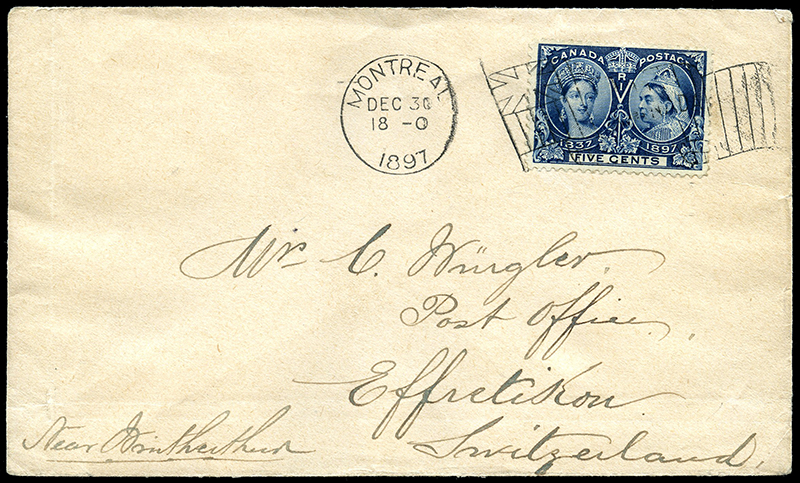 MONTREAL
DEC 30
18 - 0
1897
CANADA POSTAGE
V R
1837 1897
FIVE CENTS
Mrs C. Würgler.
Post Office
Effretikon
Switzerland.
Near Wintherthur